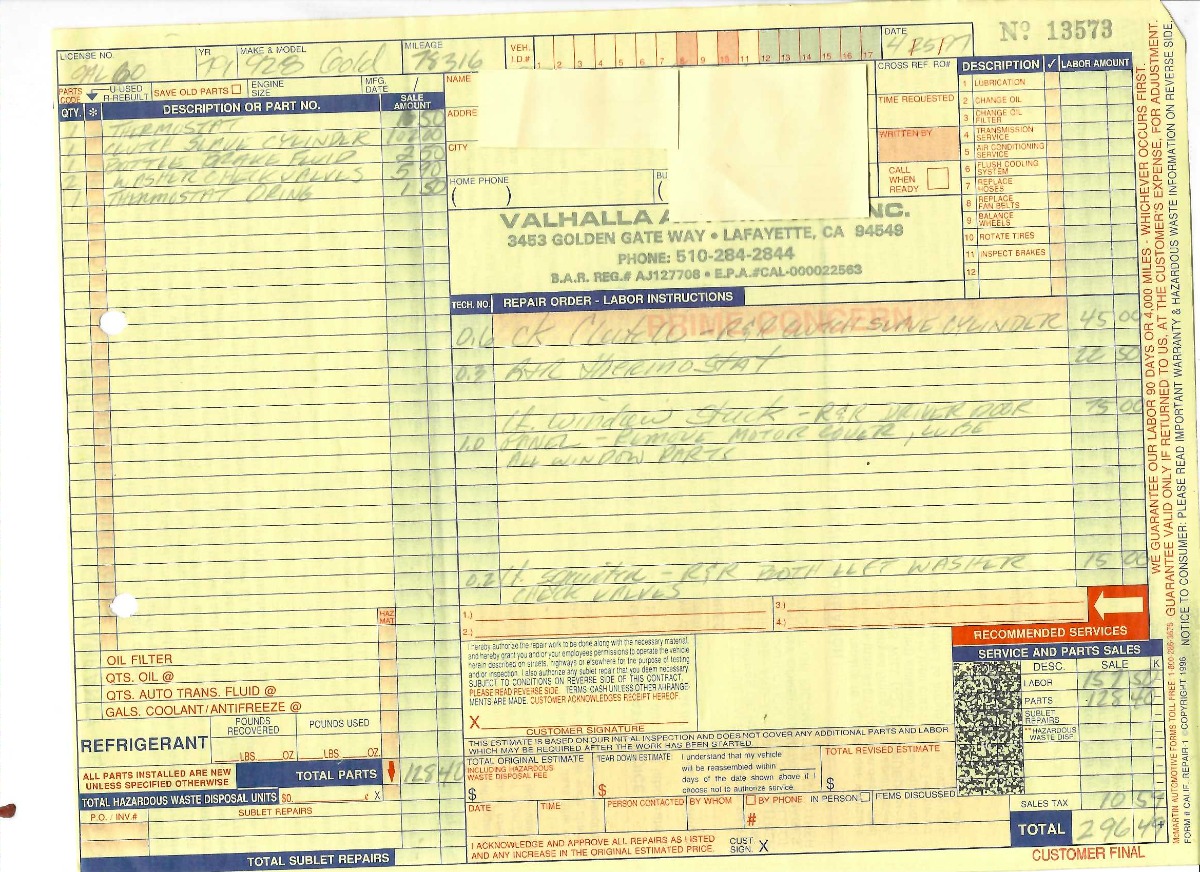 Nº 13573
LICENSE NO.
YR
MAKE & MODEL
MILEAGE
VEH. I.D.#
1 2 3 4 5 6 7 8 9 10 11 12 13 14 15 16 17
DATE
928 Gold
78316
PARTS CODE
U-USED
R-REBUILT
SAVE OLD PARTS
ENGINE SIZE
MFG. DATE
/
QTY.
*
DESCRIPTION OR PART NO.
SALE AMOUNT
1 THERMOSTAT
1 CLUTCH SLAVE CYLINDER
1 BOTTLE BRAKE FLUID 2 50
2 WASHER CHECK VALVES 5 90
1 THERMOSTAT ORING 1 50
NAME
ADDRE
CITY
HOME PHONE
( )
BU
(
CROSS REF. RO#
TIME REQUESTED
WRITTEN BY
CALL WHEN READY
DESCRIPTION ✓ LABOR AMOUNT
1 LUBRICATION
2 CHANGE OIL
3 CHANGE OIL FILTER
4 TRANSMISSION SERVICE
5 AIR CONDITIONING SERVICE
6 FLUSH COOLING SYSTEM
7 REPLACE HOSES
8 REPLACE FAN BELTS
9 BALANCE WHEELS
10 ROTATE TIRES
11 INSPECT BRAKES
12
VALHALLA A NC.
3453 GOLDEN GATE WAY • LAFAYETTE, CA 94549
PHONE: 510-284-2844
B.A.R. REG.# AJ127708 • E.P.A.#CAL-000022563
TECH. NO.
REPAIR ORDER - LABOR INSTRUCTIONS
PRIME CONCERN
0.6 CK Clutch - R&R CLUTCH SLAVE CYLINDER 45 00
0.3 R&R THERMOSTAT 22 50
Window Stuck - R&R DRIVER DOOR 75 00
1.0 PANEL - REMOVE MOTOR COVER, LUBE
ALL WINDOW PARTS
0.2 - R&R BOTH WASHER 15 00
CHECK VALVES
HAZ MAT
1.)
2.)
3.)
4.)
RECOMMENDED SERVICES
OIL FILTER
QTS. OIL @
QTS. AUTO TRANS. FLUID @
GALS. COOLANT/ANTIFREEZE @
REFRIGERANT
POUNDS RECOVERED
POUNDS USED
LBS OZ.
LBS. OZ.
ALL PARTS INSTALLED ARE NEW
UNLESS SPECIFIED OTHERWISE
TOTAL PARTS
128 40
TOTAL HAZARDOUS WASTE DISPOSAL UNITS
¢ X
P.O. / INV.#
SUBLET REPAIRS
TOTAL SUBLET REPAIRS
I hereby authorize the repair work to be done along with the necessary material, and hereby grant you and/or your employees permissions to operate the vehicle herein described on streets, highways or elsewhere for the purpose of testing and/or inspection. I also authorize any sublet repair that you deem necessary.
SUBJECT TO CONDITIONS ON REVERSE SIDE OF THIS CONTRACT.
PLEASE READ REVERSE SIDE. TERMS: CASH UNLESS OTHER ARRANGEMENTS ARE MADE. CUSTOMER ACKNOWLEDGES RECEIPT HEREOF.
X
CUSTOMER SIGNATURE
THIS ESTIMATE IS BASED ON OUR INITIAL INSPECTION AND DOES NOT COVER ANY ADDITIONAL PARTS AND LABOR
WHICH MAY BE REQUIRED AFTER THE WORK HAS BEEN STARTED.
TOTAL ORIGINAL ESTIMATE
INCLUDING HAZARDOUS WASTE DISPOSAL FEE
$
TEAR DOWN ESTIMATE
$
I understand that my vehicle
will be reassembled within
days of the date shown above if I
choose not to authorize service.
TOTAL REVISED ESTIMATE
$
DATE
TIME
PERSON CONTACTED
BY WHOM
BY PHONE
IN PERSON
ITEMS DISCUSSED
#
I ACKNOWLEDGE AND APPROVE ALL REPAIRS AS LISTED
AND ANY INCREASE IN THE ORIGINAL ESTIMATED PRICE.
CUST. SIGN. X
SERVICE AND PARTS SALES
DESC. SALE K
LABOR 157 50
PARTS 128 40
SUBLET REPAIRS
**HAZARDOUS WASTE DISP.
SALES TAX 10 59
TOTAL 296.49
CUSTOMER FINAL
WE GUARANTEE OUR LABOR 90 DAYS OR 4,000 MILES - WHICHEVER OCCURS FIRST.
GUARANTEE VALID ONLY IF RETURNED TO US, AT THE CUSTOMER'S EXPENSE, FOR ADJUSTMENT.
NOTICE TO CONSUMER: PLEASE READ IMPORTANT WARRANTY & HAZARDOUS WASTE INFORMATION ON REVERSE SIDE.